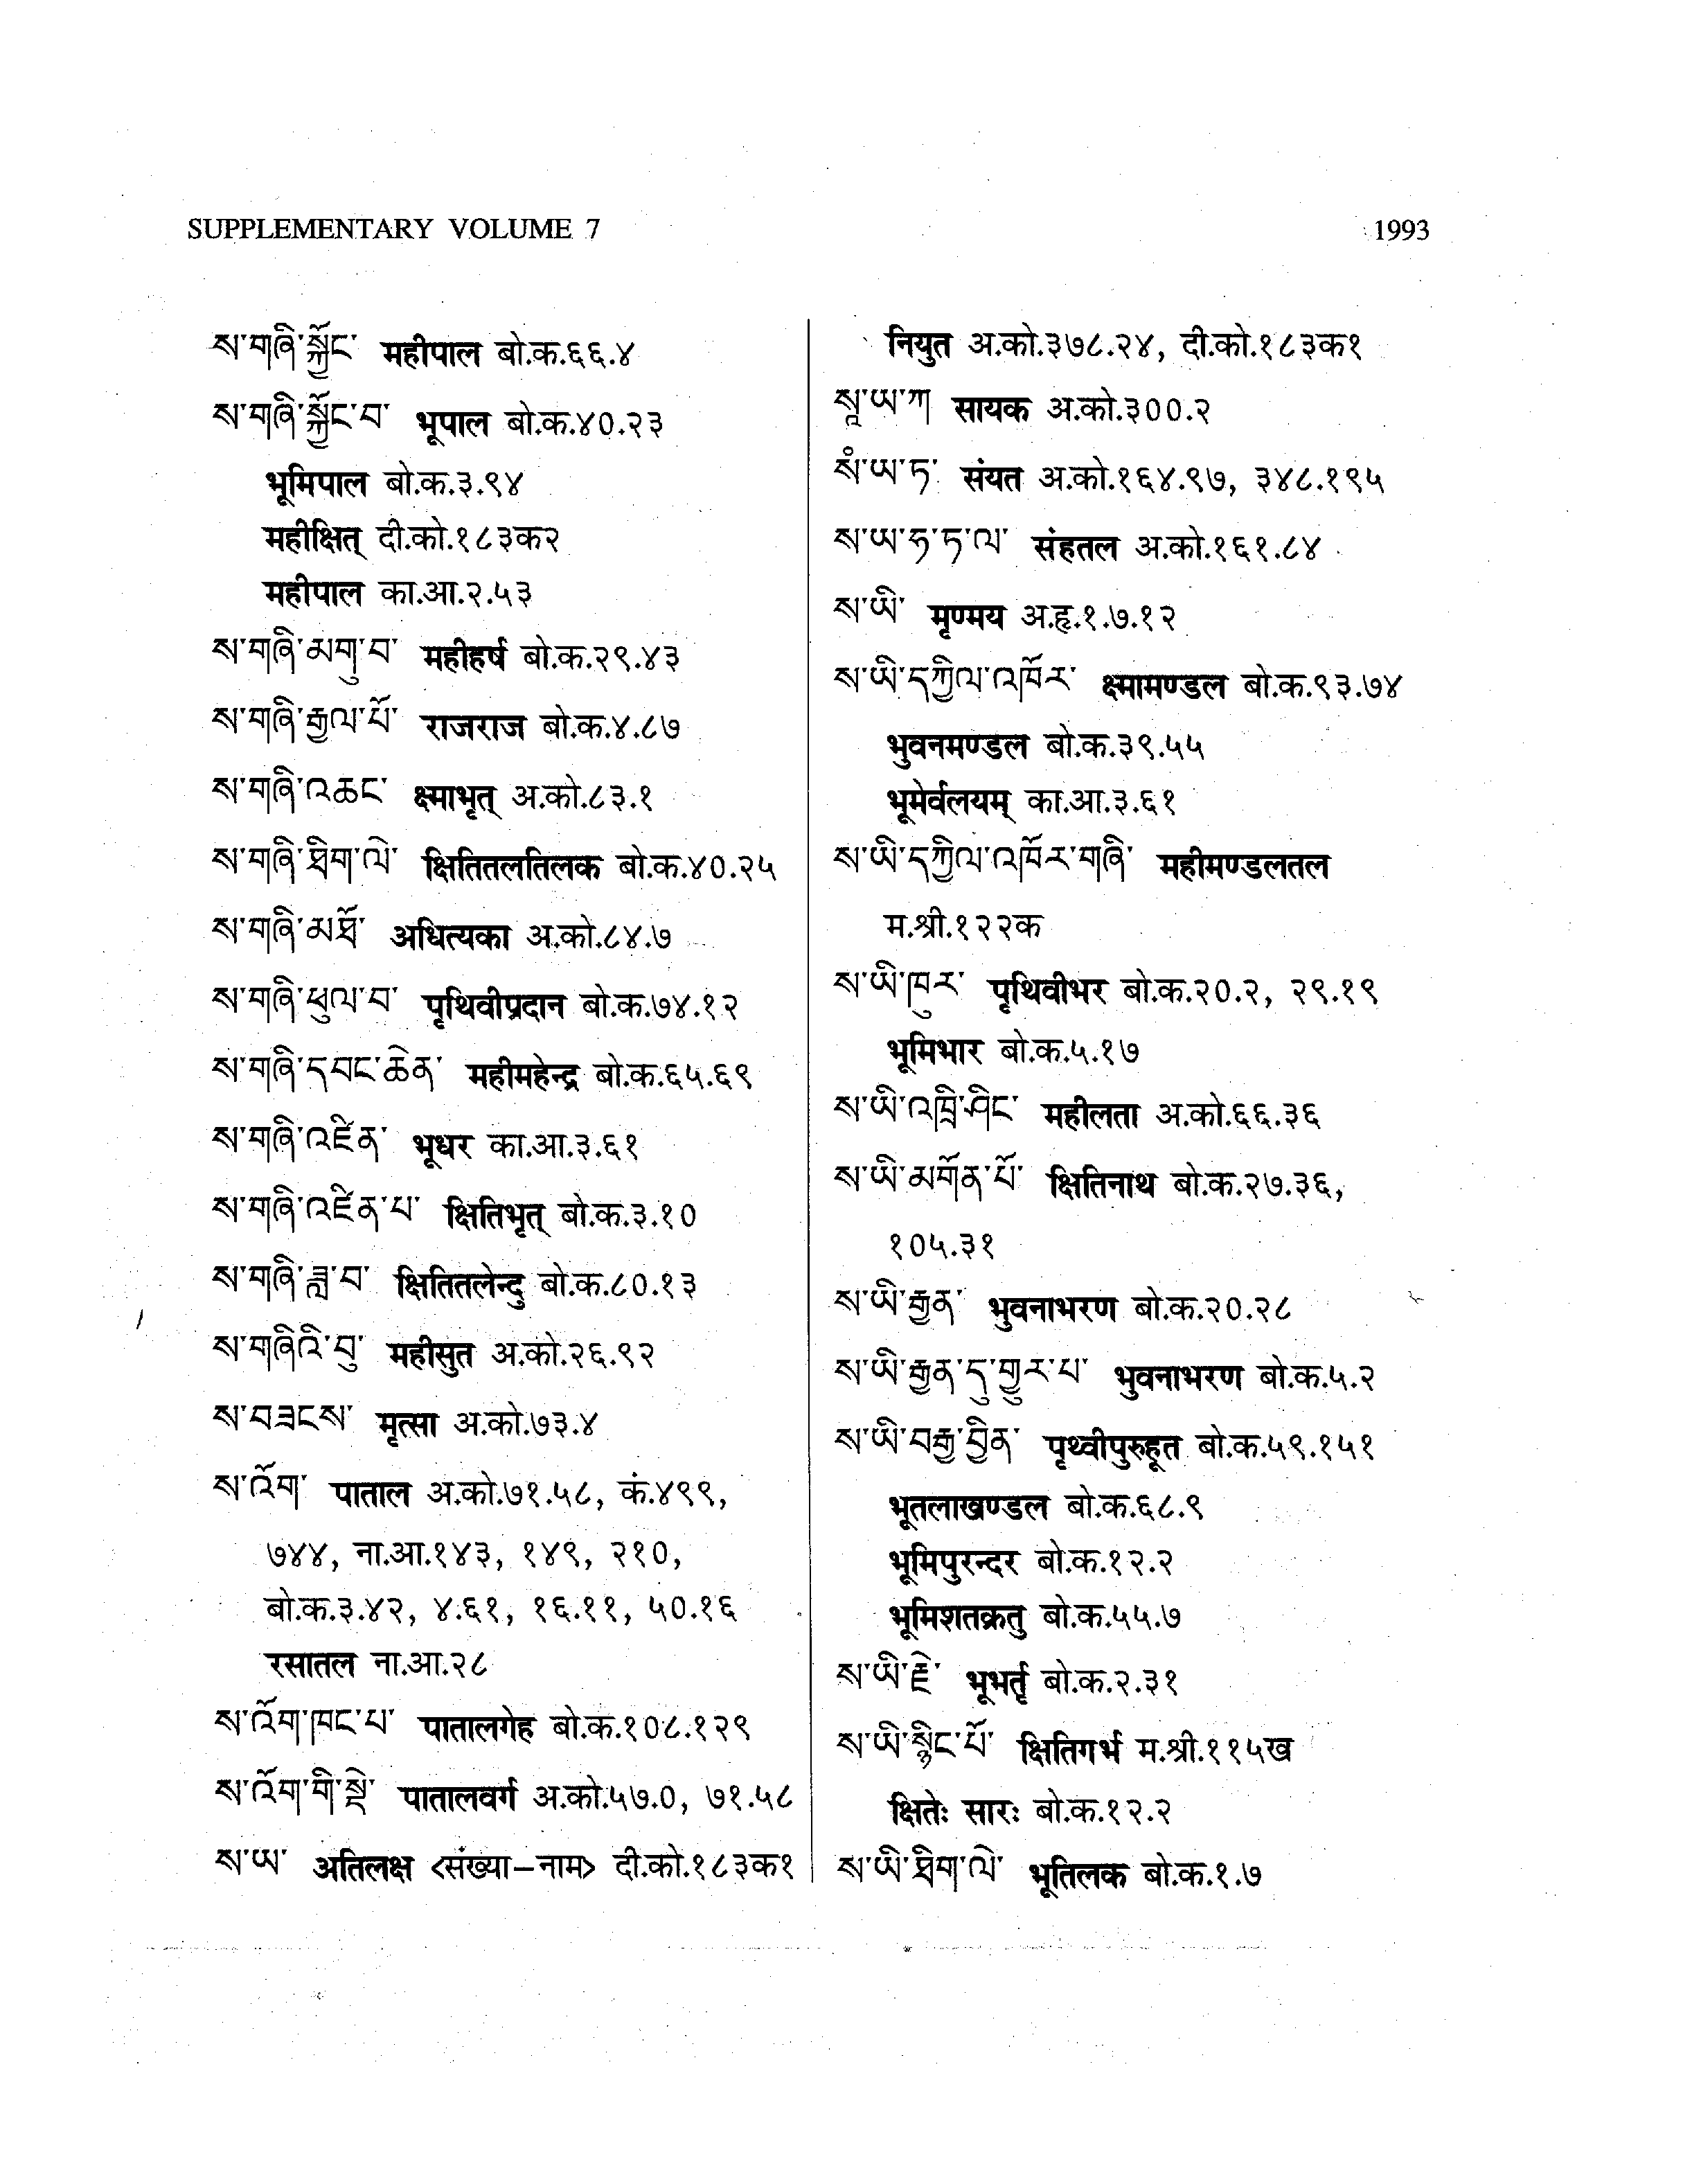 SUPPLEMENTARY VOLUME 7
1993
ས་གཞི་སྐྱོང་ महीपाल बो.क.६६.४
ས་གཞི་སྐྱོང་བ་ भूपाल बो.क.४0.२३
भूमिपाल बो.क.३.९४
महीक्षित् दी.को.१८३क२
महीपाल का.आ.२.५३
ས་གཞི་མགུ་བ་ महीहर्ष बो.क.२९.४३
ས་གཞི་རྒྱལ་པོ་ राजराज बो.क.४.८७
ས་གཞི་འཆང་ क्ष्माभृत् अ.को.८३.१
ས་གཞི་ཐིག་ལེ་ क्षितितलतिलक बो.क.४0.२५
ས་གཞི་མཐོ་ अधित्यका अ.को.८४.७
ས་གཞི་ཕུལ་བ་ पृथिवीप्रदान बो.क.७४.१२
ས་གཞི་དབང་ཆེན་ महीमहेन्द्र बो.क.६५.६९
ས་གཞི་འཛིན་ भूधर का.आ.३.६१
ས་གཞི་འཛིན་པ་ क्षितिभृत् बो.क.३.१0
ས་གཞི་ཟླ་བ་ क्षितितलेन्दु बो.क.८0.१३
ས་གཞིའི་བུ་ महीसुत अ.को.२६.९२
ས་བཟངས་ मृत्सा अ.को.७३.४
ས་འོག་ पाताल अ.को.७१.५८, कं.४९९,
७४४, ना.आ.१४३, १४९, २१0,
बो.क.३.४२, ४.६१, १६.११, ५0.१६
रसातल ना.आ.२८
ས་འོག་ཁང་པ་ पातालगेह बो.क.१0८.१२९
ས་འོག་གི་སྡེ་ पातालवर्ग अ.को.५७.0, ७१.५८
ས་ཡ་ अतिलक्ष <संख्या-नाम> दी.को.१८३क१
नियुत अ.को.३७८.२४, दी.को.१८३क१
སཱ་ཡ་ཀ सायक अ.को.३00.२
སཾ་ཡ་ཏ་ संयत अ.को.१६४.९७, ३४८.१९५
ས་ཡ་ཧ་ཏ་ལ་ संहतल अ.को.१६१.८४
ས་ཡི་ मृण्मय अ.हृ.१.७.१२
ས་ཡི་དཀྱིལ་འཁོར་ क्ष्मामण्डल बो.क.९३.७४
भुवनमण्डल बो.क.३९.५५
भूमेर्वलयम् का.आ.३.६१
ས་ཡི་དཀྱིལ་འཁོར་གཞི་ महीमण्डलतल
म.श्री.१२२क
ས་ཡི་ཁུར་ पृथिवीभर बो.क.२0.२, २९.१९
भूमिभार बो.क.५.१७
ས་ཡི་འཁྲི་ཤིང་ महीलता अ.को.६६.३६
ས་ཡི་མགོན་པོ་ क्षितिनाथ बो.क.२७.३६,
१0५.३१
ས་ཡི་རྒྱན་ भुवनाभरण बो.क.२0.२८
ས་ཡི་རྒྱན་དུ་གྱུར་པ་ भुवनाभरण बो.क.५.२
ས་ཡི་བརྒྱ་བྱིན་ पृथ्वीपुरुहूत बो.क.५९.१५१
भूतलाखण्डल बो.क.६८.९
भूमिपुरन्दर बो.क.१२.२
भूमिशतक्रतु बो.क.५५.७
ས་ཡི་རྗེ་ भूभर्तृ बो.क.२.३१
ས་ཡི་སྙིང་པོ་ क्षितिगर्भ म.श्री.११५ख
क्षितेः सारः बो.क.१२.२
ས་ཡི་ཐིག་ལེ་ भूतिलक बो.क.१.७